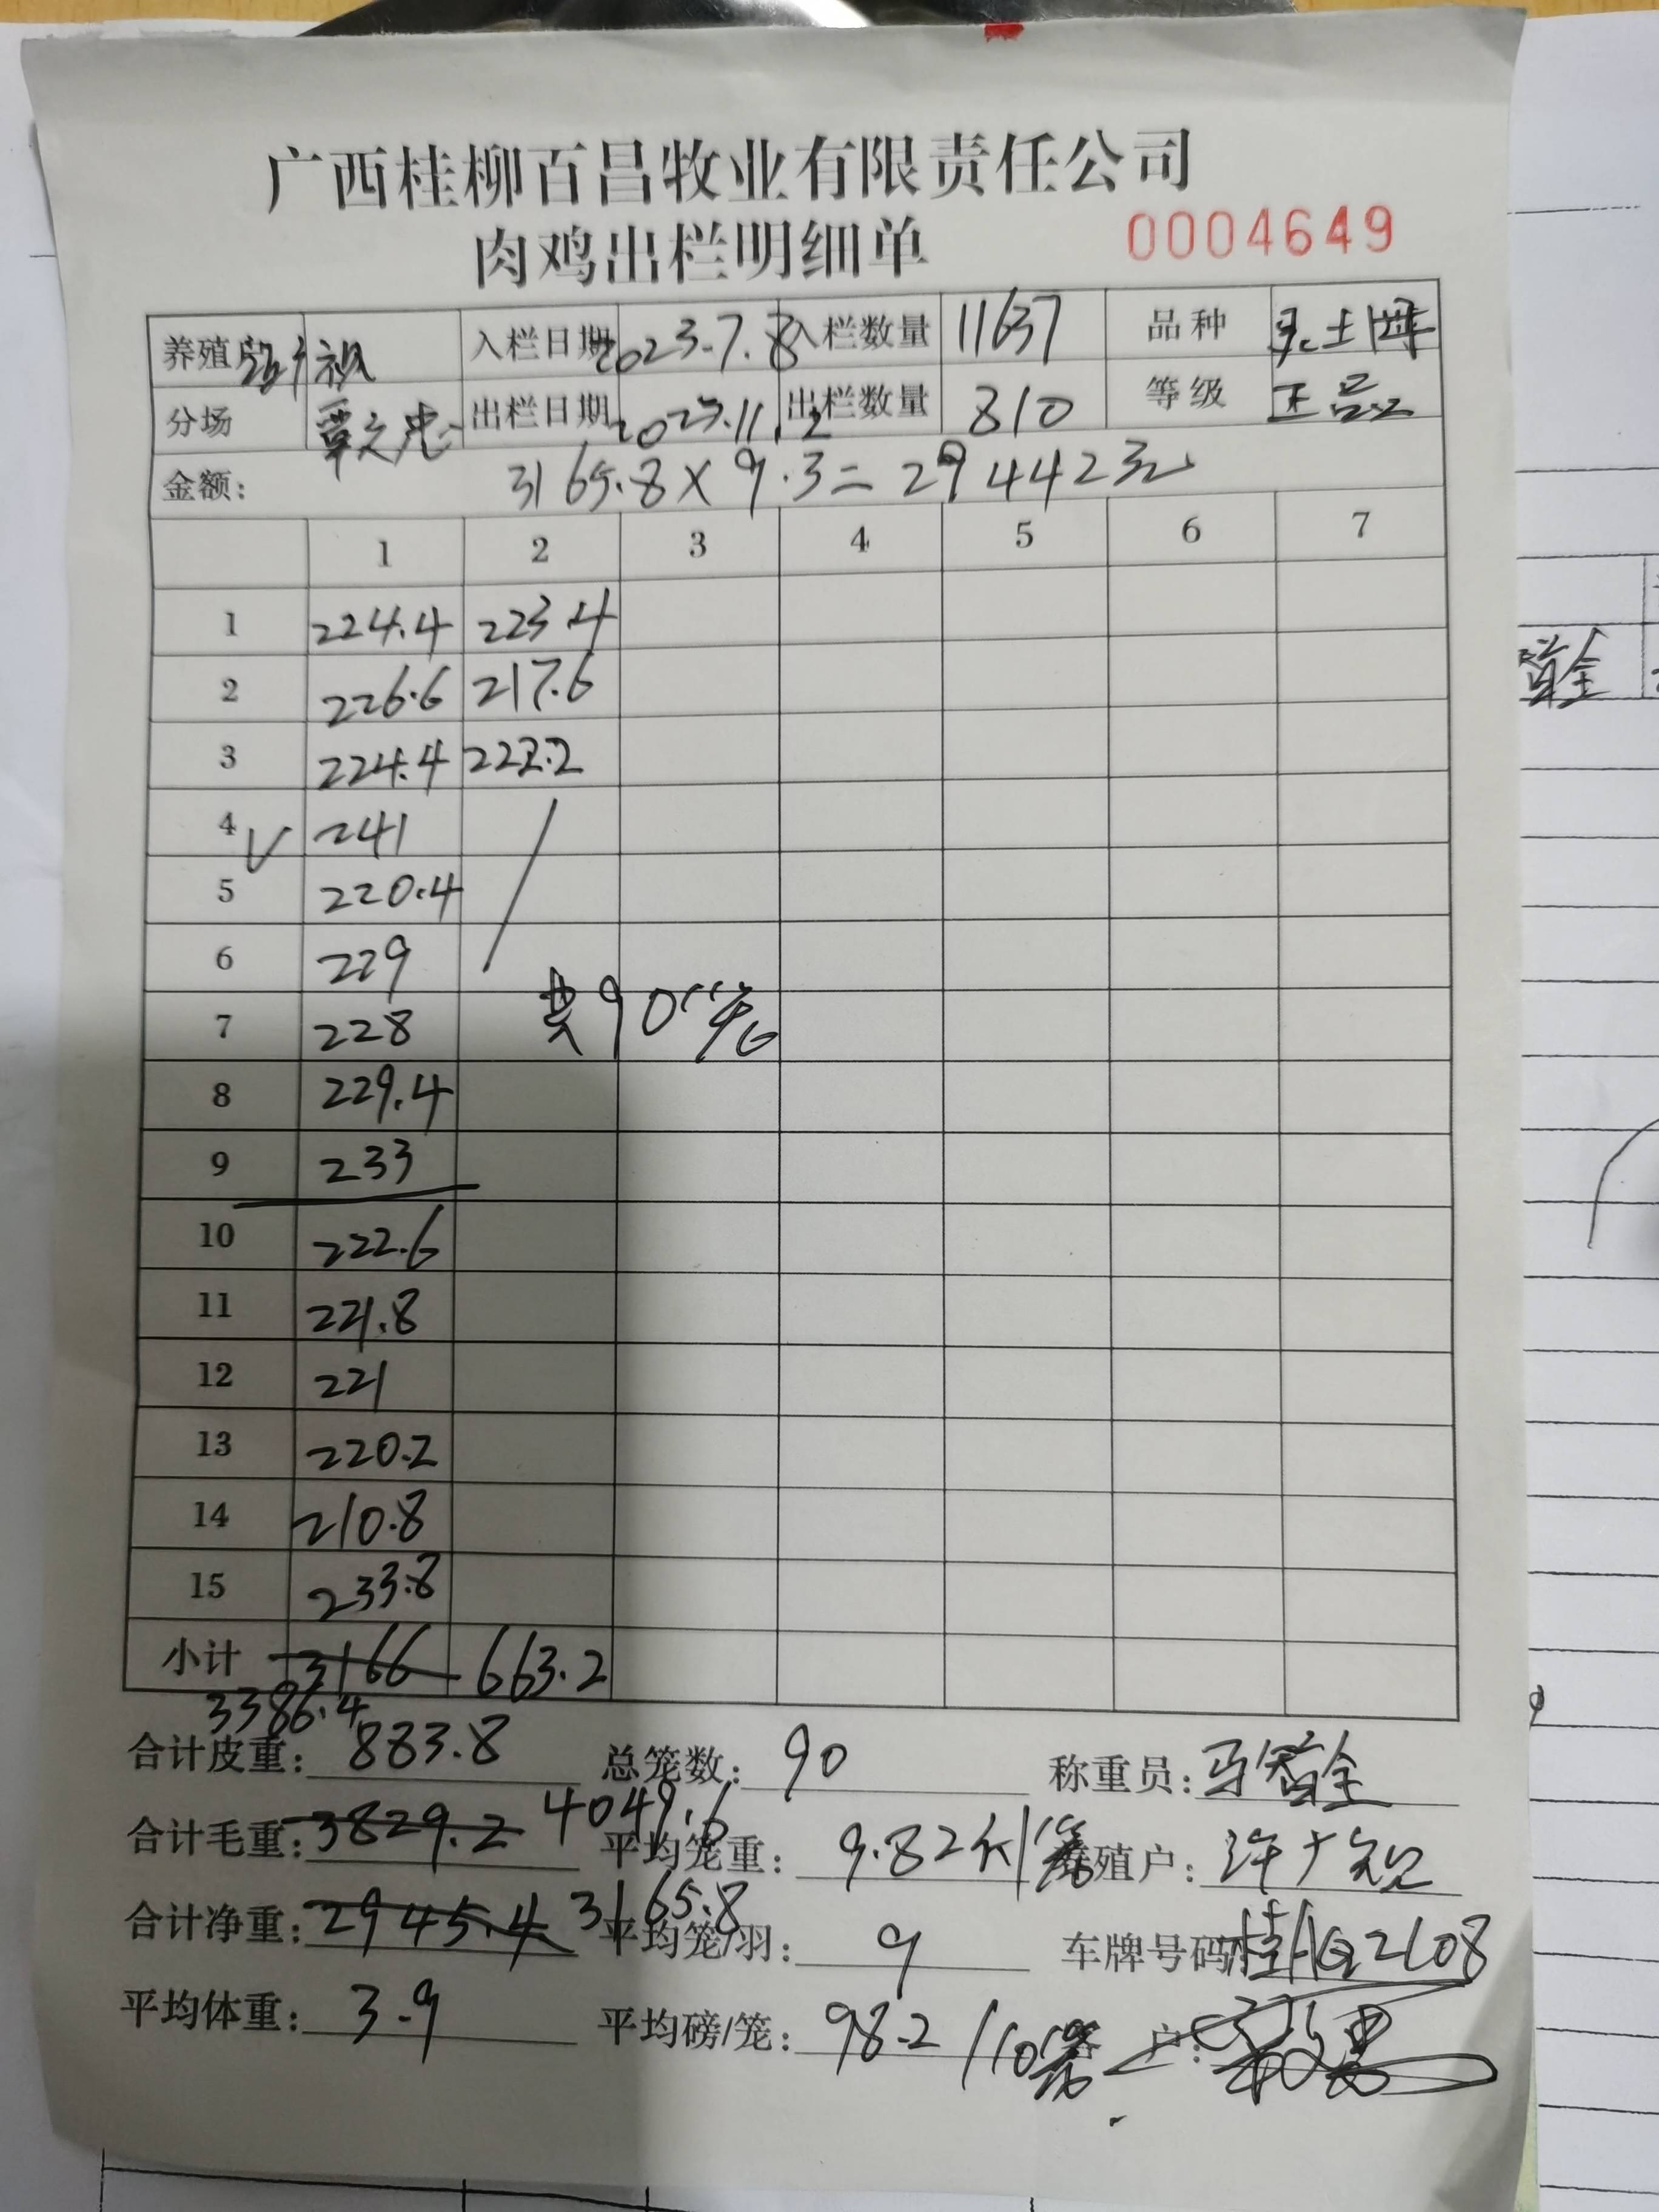 广西桂柳百昌牧业有限责任公司
肉鸡出栏明细单 0004649
养殖户 入栏日期 2023.7.8 入栏数量 11637 品种
分场 覃文忠 出栏日期 2023.11.2 出栏数量 810 等级 正品
金额: 3165.8×9.3=29442元
1 2 3 4 5 6 7
1 224.4 223.4
2 226.6 217.6
3 224.4 222.2
4 241
5 220.4
6 229
7 228 共90笼
8 229.4
9 233
10 222.6
11 221.8
12 221
13 220.2
14 210.8
15 233.8
小计 3166 663.2
3386.4
合计皮重: 883.8 总笼数: 90 称重员: 马啟全
合计毛重: 3829.2 4049.6 平均笼重: 9.82斤/笼 养殖户:
合计净重: 2945.4 3165.8 平均笼/羽: 9 车牌号码: 桂AG2108
平均体重: 3.9 平均磅/笼: 98.2/10笼 户: